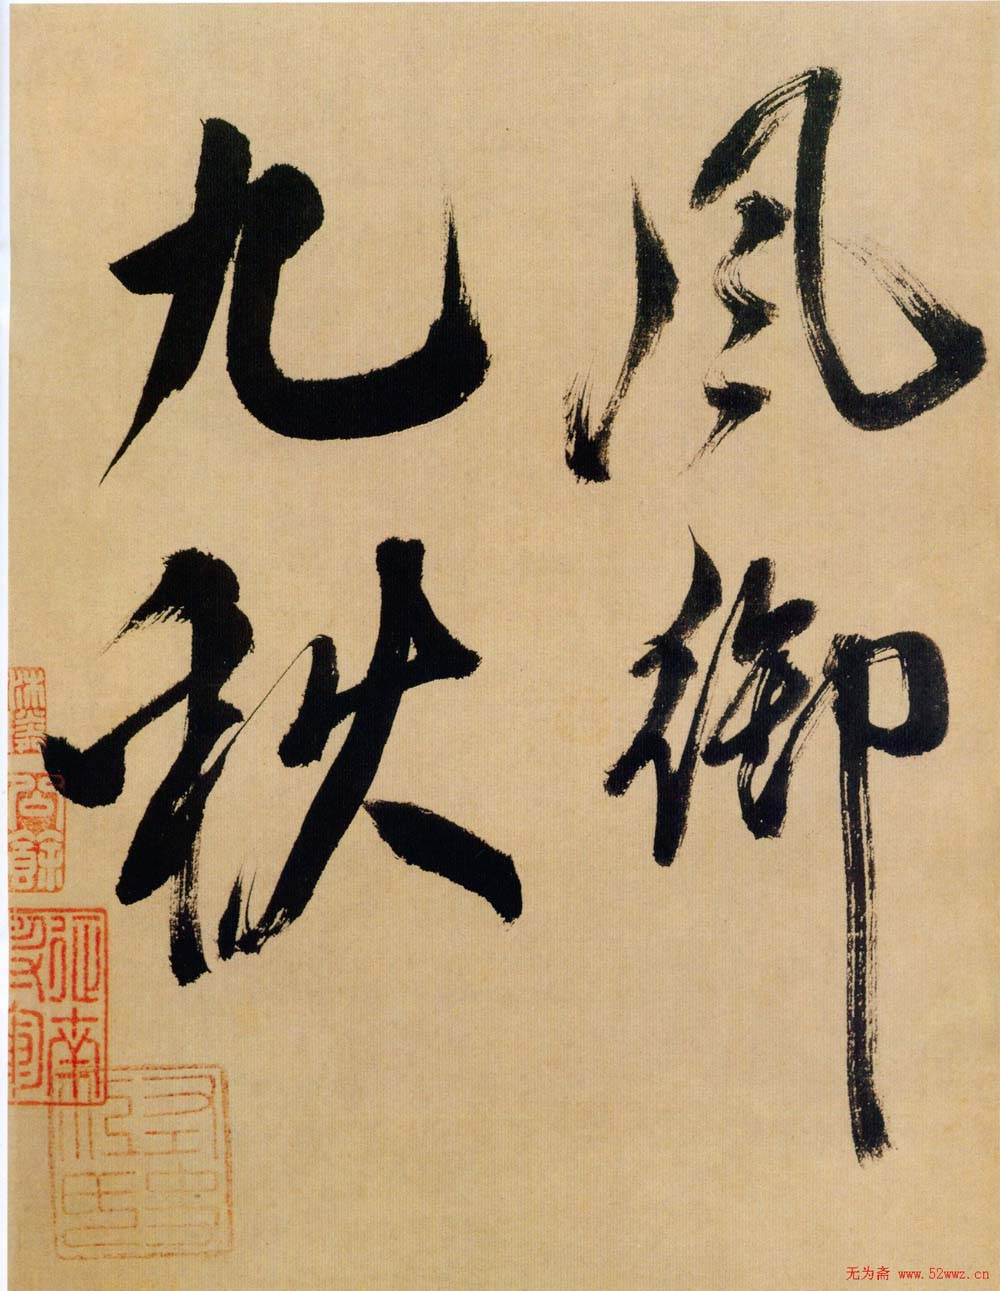 風御
九秋
无为斋 www.52wwz.cn